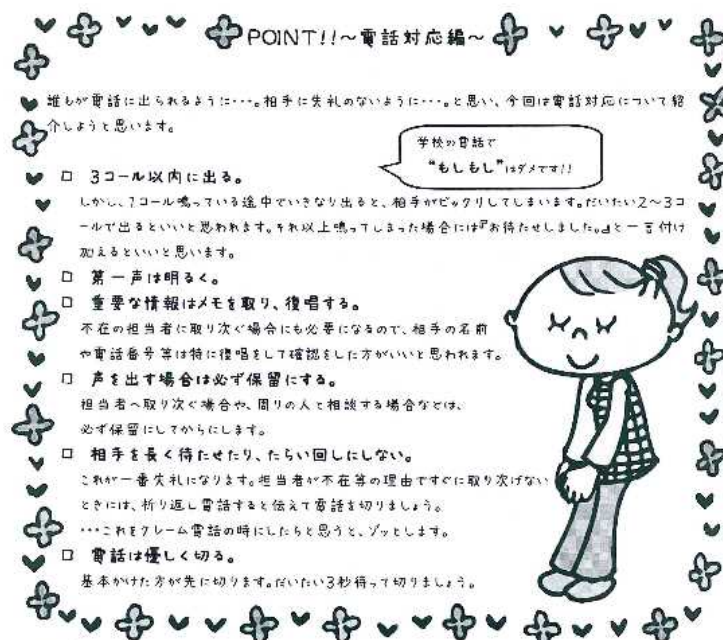 POINT!!~電話対応編~
誰もが電話に出られるように…。相手に失礼のないように…。と思い、今回は電話対応について紹
介しようと思います。
学校の電話で
“もしもし”はダメです!!
□ 3コール以内に出る。
しかし、1コール鳴っている途中でいきなり出ると、相手がビックリしてしまいます。だいたい2~3コ
ールで出るといいと思われます。それ以上鳴ってしまった場合には『お待たせしました。』と一言付け
加えるといいと思います。
□ 第一声は明るく。
□ 重要な情報はメモを取り、復唱する。
不在の担当者に取り次ぐ場合にも必要になるので、相手の名前
や電話番号等は特に復唱をして確認をした方がいいと思われます。
□ 声を出す場合は必ず保留にする。
担当者へ取り次ぐ場合や、周りの人と相談する場合などは、
必ず保留にしてからにします。
□ 相手を長く待たせたり、たらい回しにしない。
これが一番失礼になります。担当者が不在等の理由ですぐに取り次げない
ときには、折り返し電話すると伝えて電話を切りましょう。
…これをクレーム電話の時にしたらと思うと、ゾッとします。
□ 電話は優しく切る。
基本かけた方が先に切ります。だいたい3秒待って切りましょう。